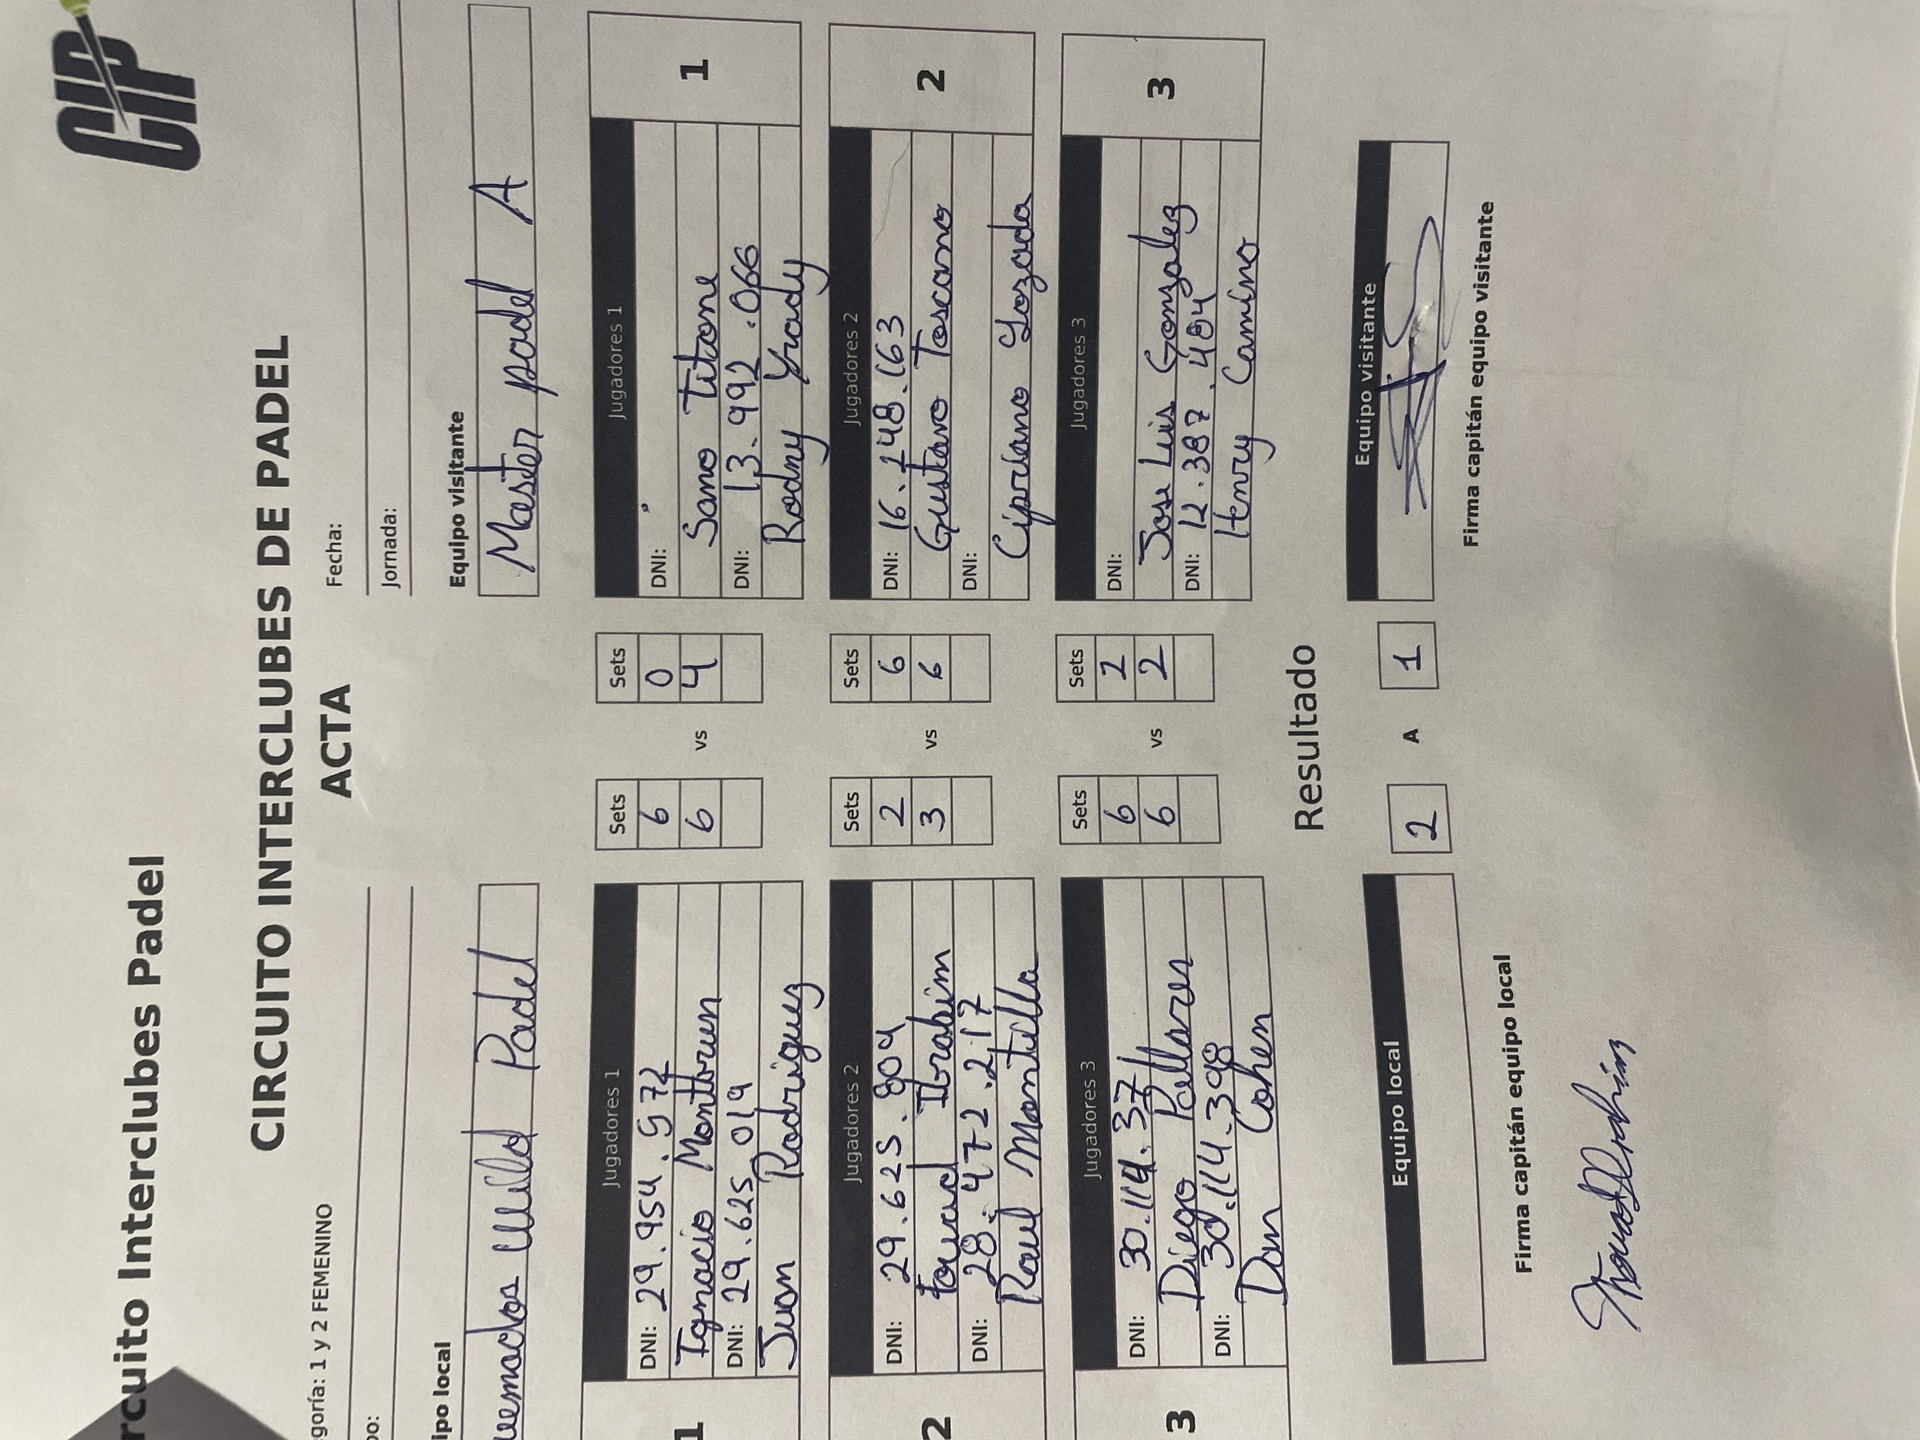 CIP
rcuito Interclubes Padel
CIRCUITO INTERCLUBES DE PADEL
ACTA
goría: 1 y 2 FEMENINO
Fecha:
po:
Jornada:
ipo local
Equipo visitante
Padel
Master padel A
1
Jugadores 1
DNI: 29.954.972
Ignacio Montbrun
DNI: 29.625.019
Juan Rodriguez
Sets
6
6
vs
Sets
0
4
Jugadores 1
DNI:
Sano Titone
DNI: 13.992.066
Rodny Yrady
1
2
Jugadores 2
DNI: 29.625.804
Fouad Ibrahim
DNI: 28.472.217
Raul Montilla
Sets
2
3
vs
Sets
6
6
Jugadores 2
DNI: 16.248.163
Gustavo Toscano
DNI:
Cipriano Lozada
2
3
Jugadores 3
DNI: 30.114.37
Diego Pallares
DNI: 30.114.398
Dan Cohen
Sets
6
6
vs
Sets
2
2
Jugadores 3
DNI:
Jose Luis Gonzalez
DNI: 12.387.484
Henry Camino
3
Resultado
Equipo local
2
A
1
Equipo visitante
Firma capitán equipo local
Firma capitán equipo visitante